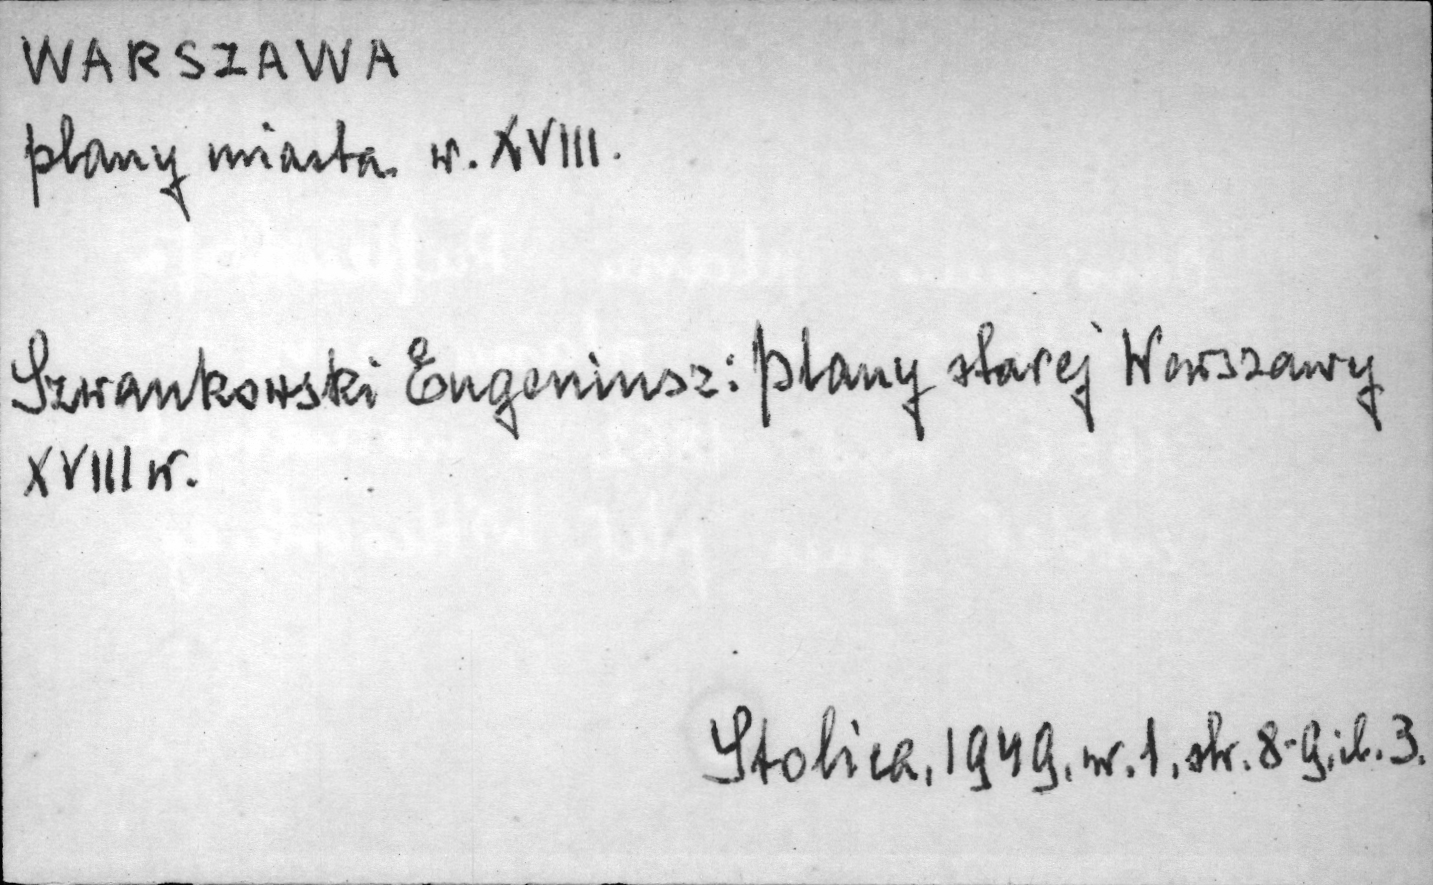 WARSZAWA
plany miasta. w. XVIII.
Szwankowski Eugeniusz: plany starej Warszawy
XVIII w.
Stolica, 1949, nr. 1, str. 8-9, il. 3.